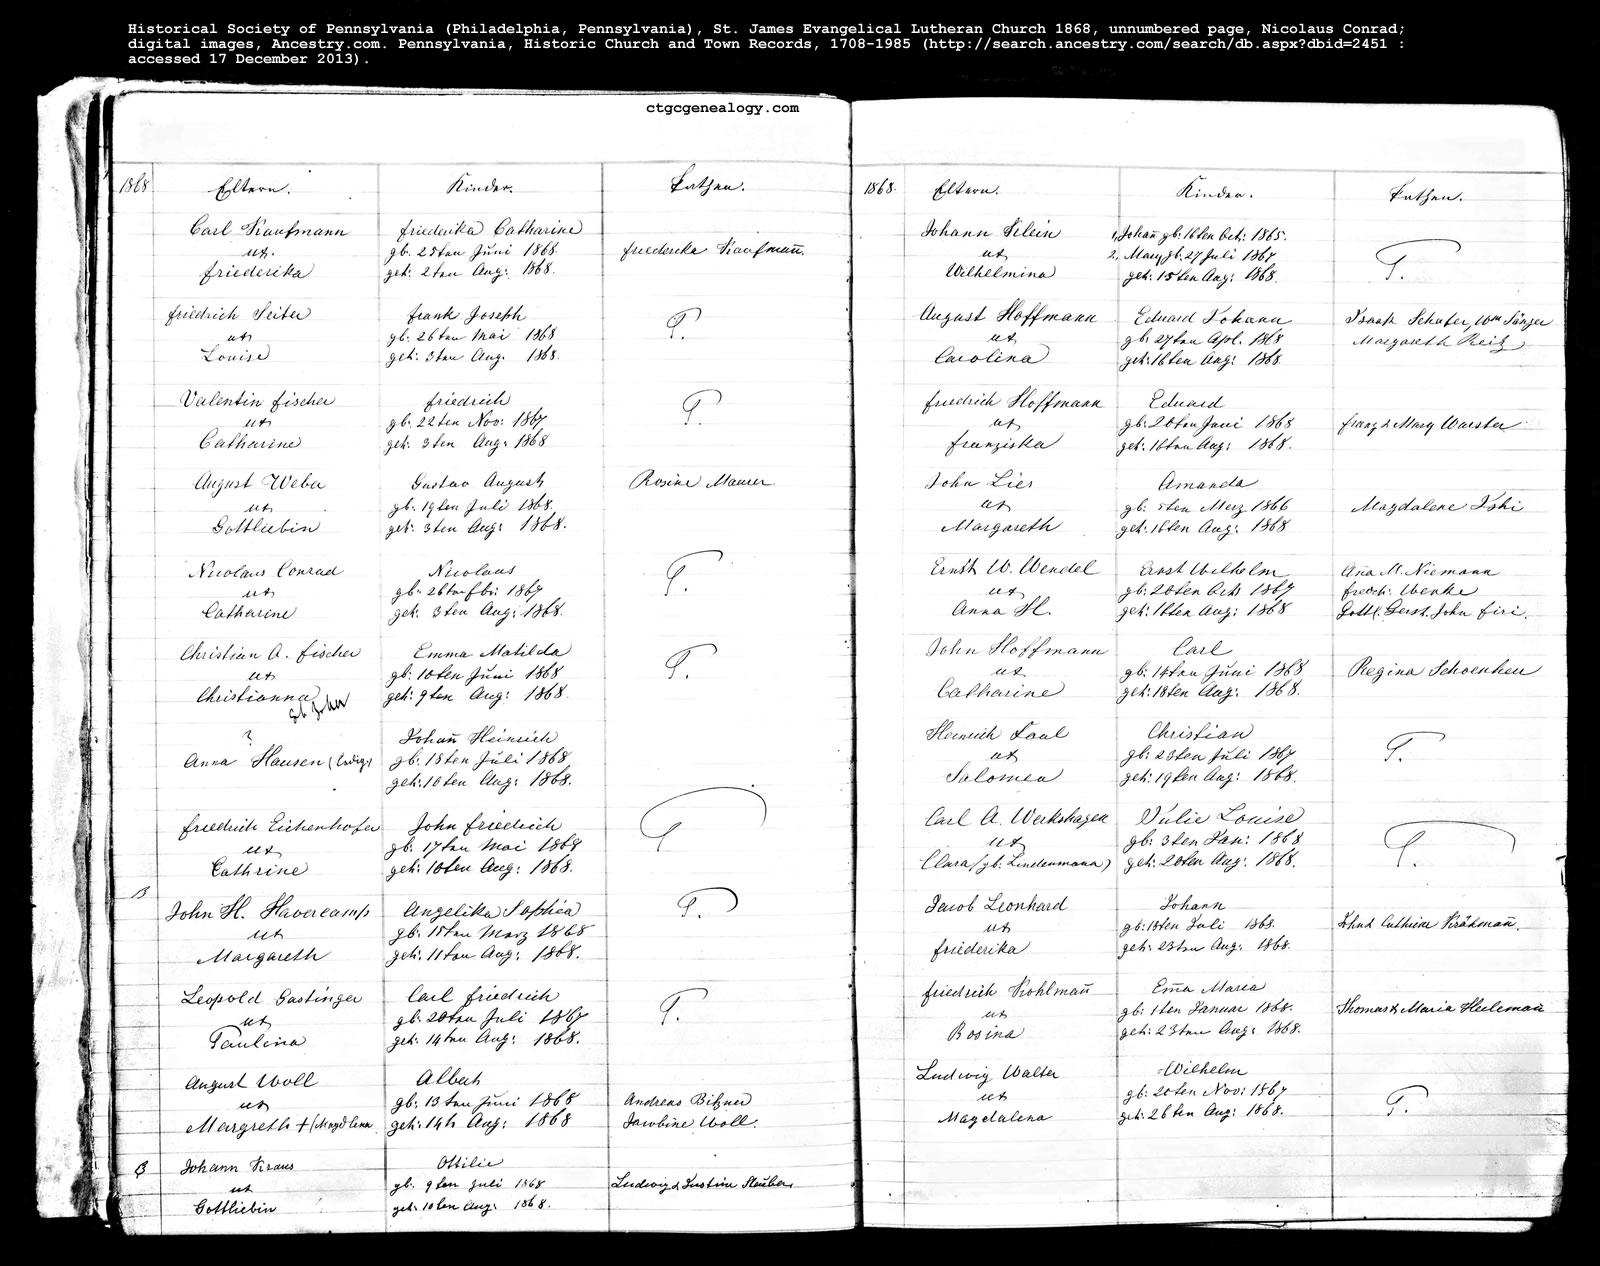 Historical Society of Pennsylvania (Philadelphia, Pennsylvania), St. James Evangelical Lutheran Church 1868, unnumbered page, Nicolaus Conrad;
digital images, Ancestry.com. Pennsylvania, Historic Church and Town Records, 1708-1985 (http://search.ancestry.com/search/db.aspx?dbid=2451 :
accessed 17 December 2013).
ctgcgenealogy.com
1868 Eltern. Kinder. Pathen.
Carl Kaufmann Friederika Catharine
ux. gb. 25ten Juni 1868. Friedericka Kaufmañ.
Friederika get: 2ten Aug: 1868.
Friedrich Seiter Frank Joseph
ux gb. 26ten Mai 1868 P.
Louise get: 3ten Aug. 1868.
Valentin Fischer Friedrich
ux gb. 22ten Nov: 1867 P.
Catharine get: 3ten Aug: 1868
August Weber Gustav August Rosine Maurer
ux gb. 19ten Juli 1868.
Gottliebin get: 3ten Aug: 1868.
Nicolaus Conrad Nicolaus
ux gb. 26ten fbr: 1867 P.
Catharine get: 3ten Aug: 1868.
Christian A. Fischer Emma Matilda
ux gb. 10ten Juni 1868 P.
Christianna get: 9ten Aug: 1868.
? Johañ Heinrich
Anna Hausen (ledig) gb. 13ten Juli 1868.
get: 10ten Aug: 1868.
Friedrich Eichenhofer John Friedrich
ux gb. 17ten Mai 1868 P.
Cathrine get: 10ten Aug: 1868.
B
John H. Havercamp Angelika Sophia P.
ux gb. 15ten März 1868
Margareth get: 11ten Aug: 1868.
Leopold Gastinger Carl Friedrich
ux gb. 20ten Juli 1867 P.
Paulina get: 14ten Aug: 1868.
August Woll Albert
ux gb. 13ten Juni 1868 Andreas Bitzner
Margreth + (Magdlena get: 14th Aug: 1868 Jacobine Woll.
B Johann Kraus Ottilie
ux gb. 9ten Juli 1868 Ludwig & Justine Stauber
Gottliebin get: 10ten Aug: 1868.
1868. Eltern. Kinder. Pathen.
Johann Klein 1, Johañ gb: 16ten Oct: 1865.
ux 2, Mary gb. 27 Juli 1867 P.
Wilhelmina get: 15ten Aug: 1868.
August Hoffmann Eduard Johann Isaak Schafer, Wm Sänger
ux gb. 27ten Apl. 1868 Margareth Reitz
Carolina get: 16ten Aug: 1868.
Friedrich Hoffmann Eduard
ux gb: 20ten Juni 1868 Franz & Mary Warster
Franziska get: 16ten Aug: 1868.
John Lies Amanda
ux gb. 5ten Merz 1866 Magdalene
Margareth get: 16ten Aug: 1868
Ernst W. Wendel Ernst Wilhelm Aña M. Niemann
ux gb: 20ten Oct: 1867 Fredr: Wenke
Anna H. get: 16ten Aug: 1868 Gottl. Gerst. John
John Hoffmann Carl
ux gb: 14ten Juni 1868 Regina Schoenheu
Catharine get: 18ten Aug: 1868.
Heinrich Faul Christian
ux gb: 23ten Juli 1867 P.
Salomea get: 19ten Aug: 1868.
Carl A. Werkshagen Julie Louise
ux gb: 3ten Jan: 1868 P.
Clara (gb. Lindenmann) get: 20ten Aug: 1868.
Jacob Leonhard Johann
ux gb: 13ten Juli 1868.
Friederika get: 23ten Aug: 1868.
Friedrich Kohlmañ Em̃a Maria
ux gb: 1ten Januar 1868. Thomas & Maria Heilemañ
Rosina get: 23ten Aug: 1868.
Ludwig Walter Wilhelm
ux gb: 20ten Nov: 1867 P.
Magdalena get: 26ten Aug: 1868.